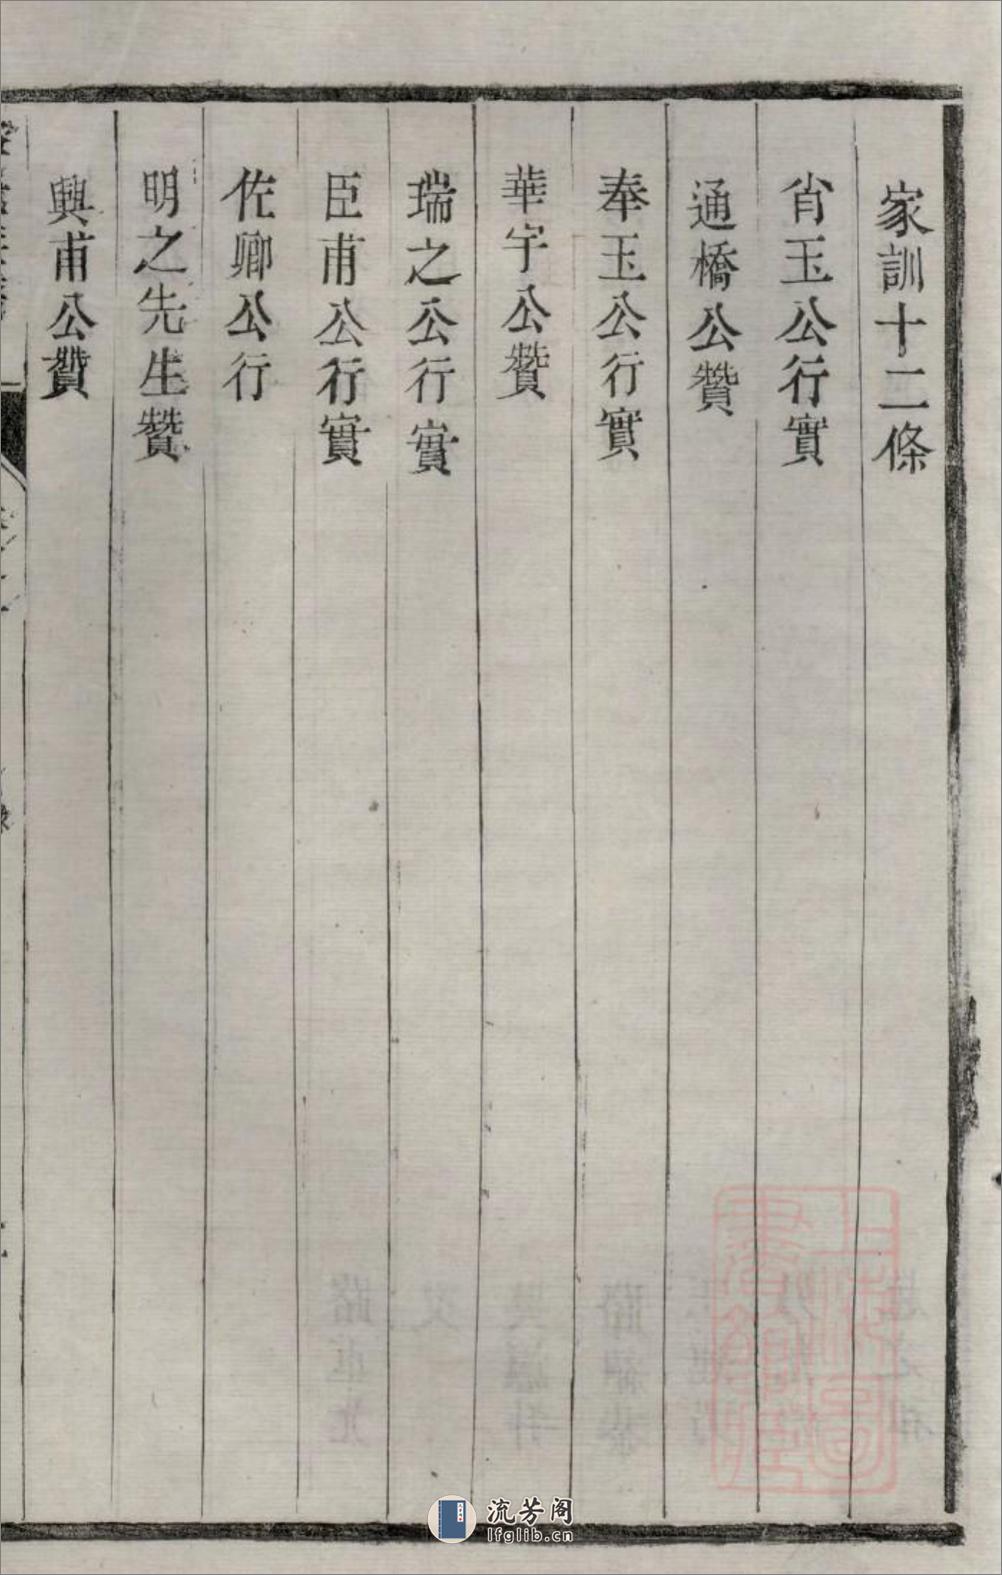 家訓十二條
肖玉公行實
通橋公贊
奉玉公行實
華宇公贊
瑞之公行實
臣甫公行實
佐卿公行
明之先生贊
興甫公贊
上海圖書館藏
流芳阁
lfglib.cn